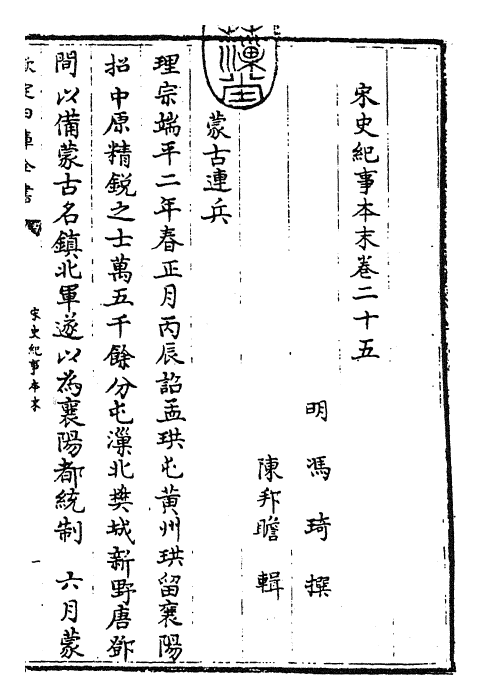 宋史紀事本末卷二十五
明 馮琦 撰
陳邦瞻 輯
蒙古連兵
理宗端平二年春正月丙辰詔孟珙屯黃州珙留襄陽
招中原精銳之士萬五千餘分屯漅北樊城新野唐鄧
間以備蒙古名鎮北軍遂以為襄陽都統制 六月蒙
欽定四庫全書
宋史紀事本末
一